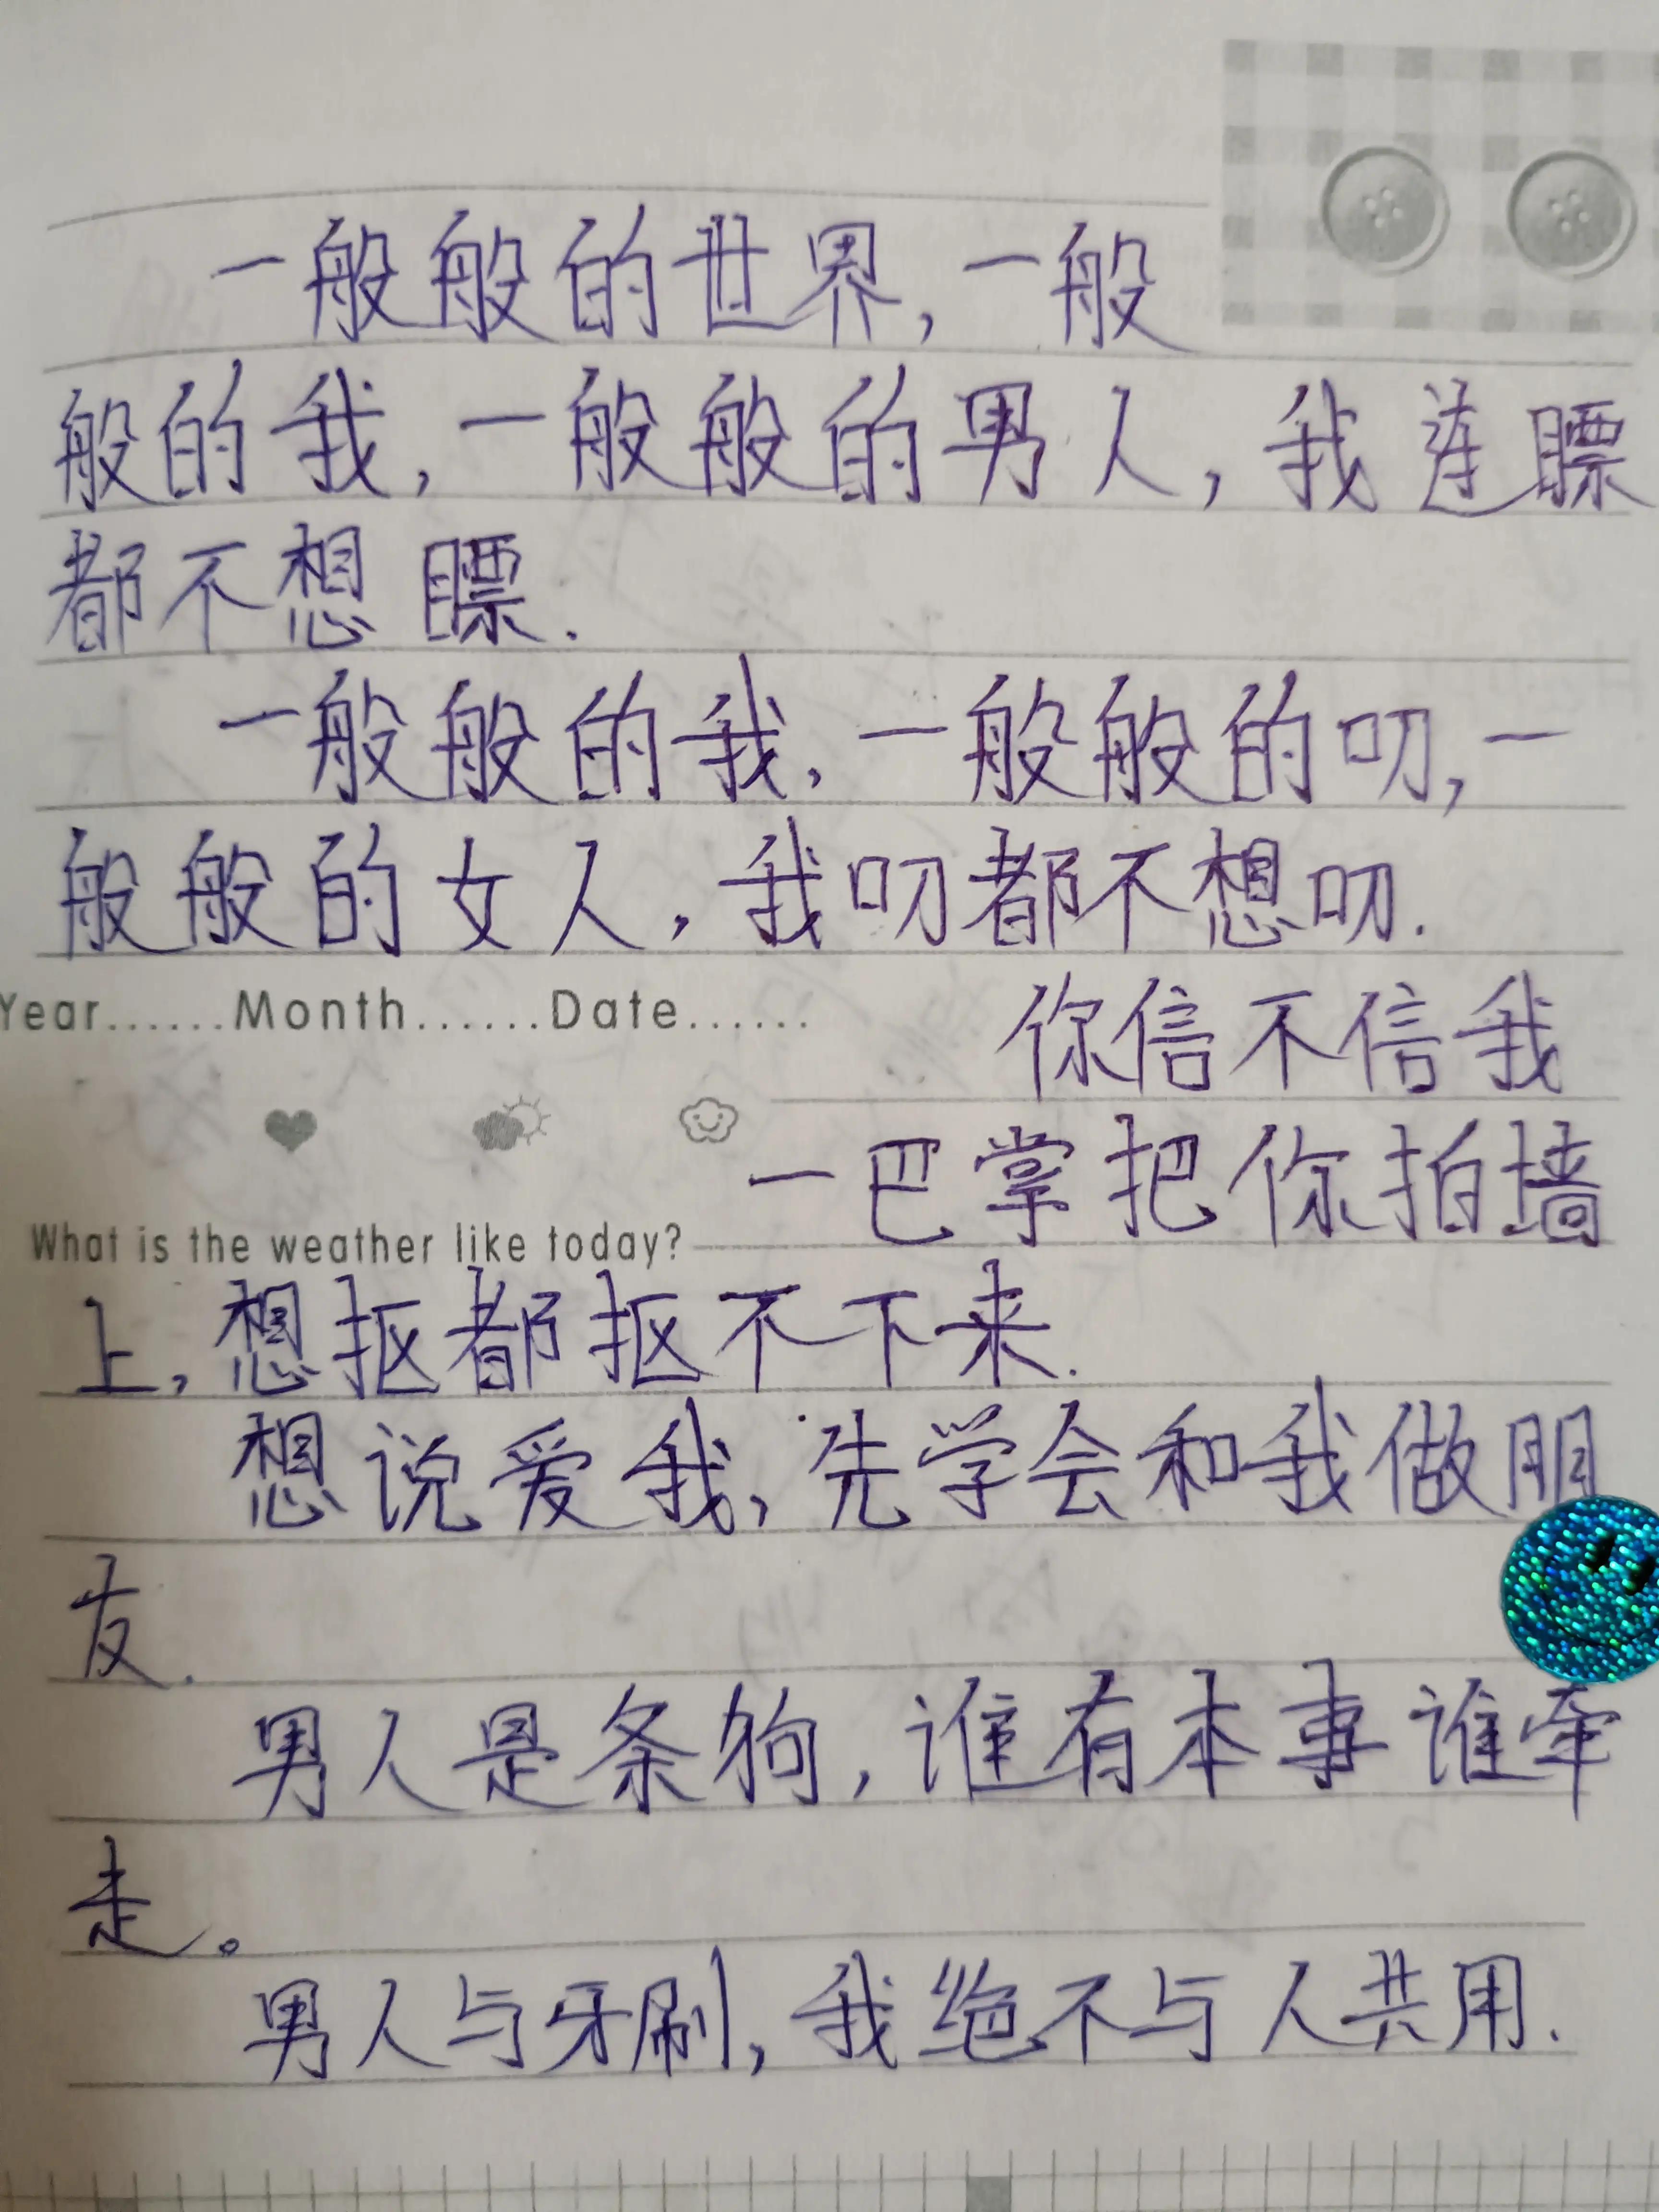 一般般的世界,一般
般的我,一般般的男人,我连瞟
都不想瞟.
一般般的我,一般般的叨,一
般般的女人,我叨都不想叨.
Year......Month......Date......
你信不信我
一巴掌把你拍墙
What is the weather like today?
上,想抠都抠不下来.
想说爱我,先学会和我做朋
友.
男人是条狗,谁有本事谁牵
走。
男人与牙刷,我绝不与人共用.